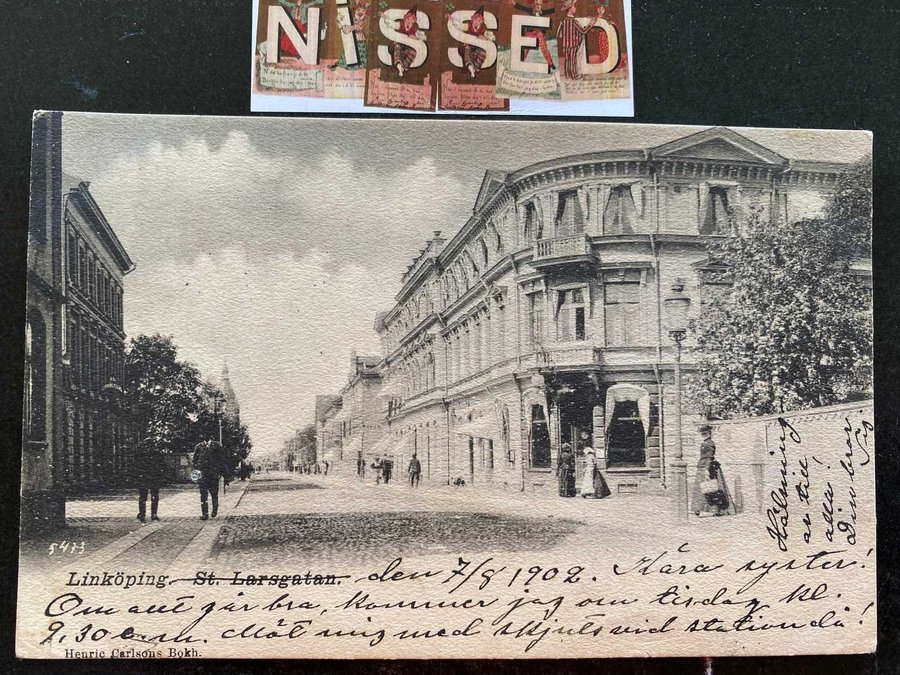 NISSED
5473
Linköping. St. Larsgatan. den 7/8 1902. Kära syster!
Om allt går bra, kommer jag om tisdag kl.
9,30 e.m. Möt mig med skjuts vid station då!
Henric Carlsons Bokh.
Hälsning
ar till
alla
Din bror